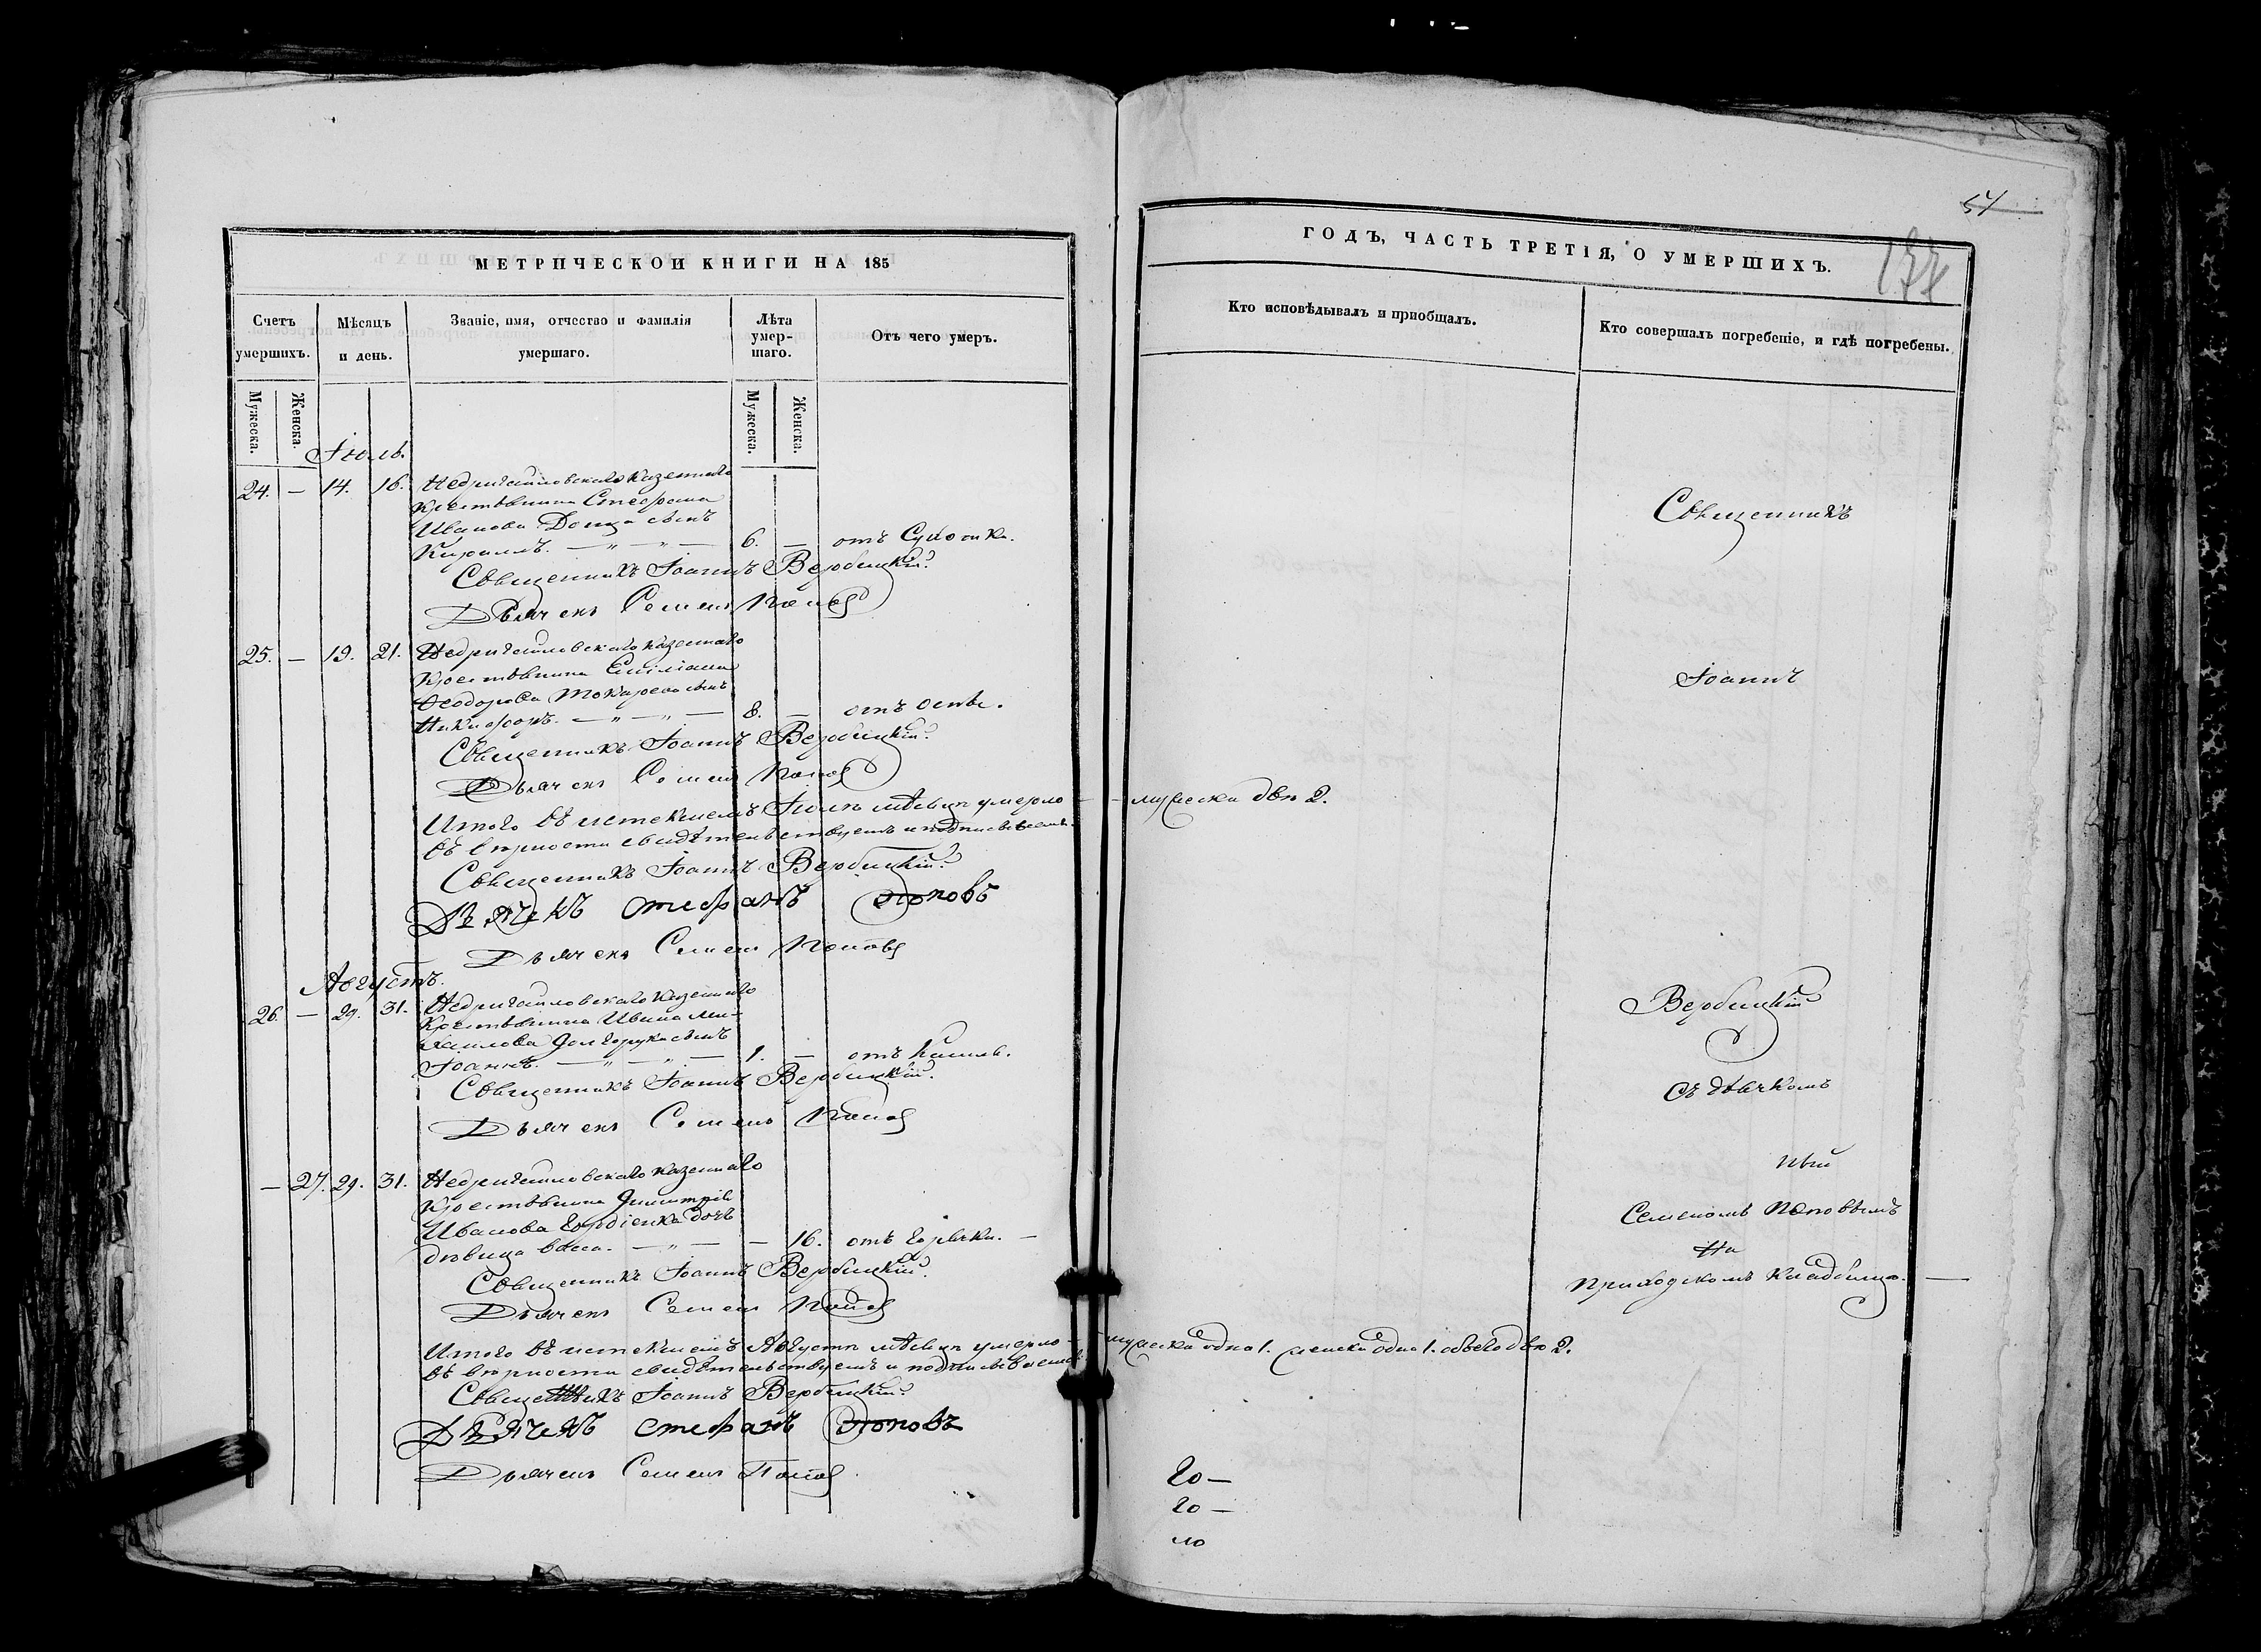 МЕТРИЧЕСКОЙ КНИГИ НА 185
Счетъ умершихъ.
Мѣсяцъ и день.
Званіе, имя, отчество и фамилія умершаго.
Лѣта умер-шаго.
Отъ чего умеръ.
Мужеска.
Женска.
Мужеска.
Женска.
Іюль.
24. — 14. 16. Недригайловскаго казеннаго
крестьянина Стефана
Иванова Донца сынъ
Кириллъ. — „ — „ — 6. — отъ Сухотки.
Священникъ Іоаннъ Вербицкій
Дьячекъ Семенъ Поповъ
25. — 19. 21. Недригайловскаго казеннаго
крестьянина Емиліана
Ѳеодорова Токарева сынъ
Никифоръ. — „ — „ — 8. — отъ оспы.
Священникъ Іоаннъ Вербицкій
Дьячекъ Семенъ Поповъ
Итого въ истекшемъ Іюлѣ мѣсяцѣ умерло —
въ вѣрности свидѣтельствуемъ и подписываемъ.
Священникъ Іоаннъ Вербицкій
Дьячекъ Стефанъ Поповъ
Дьячекъ Семенъ Поповъ
Августъ.
26. — 29. 31. Недригайловскаго казеннаго
крестьянина Ивана Ми-
хаилова Долгорука сынъ
Іоаннъ. — „ — „ — 1. — отъ кашля.
Священникъ Іоаннъ Вербицкій
Дьячекъ Семенъ Поповъ
— 27. 29. 31. Недригайловскаго казеннаго
крестьянина Димитрія
Иванова Гордіенка дочь
дѣвица — „ — — 16. отъ горячки. —
Священникъ Іоаннъ Вербицкій
Дьячекъ Семенъ Поповъ
Итого въ истекшемъ Августѣ мѣсяцѣ умерло —
въ вѣрности свидѣтельствуемъ и подписываемъ
Священникъ Іоаннъ Вербицкій
Дьячекъ Стефанъ Поповъ
Дьячекъ Семенъ Поповъ
54
ГОДЪ, ЧАСТЬ ТРЕТІЯ, О УМЕРШИХЪ.
Кто исповѣдывалъ и пріобщалъ.
Кто совершалъ погребеніе, и гдѣ погребены.
Священникъ
Іоаннъ
— мужеска два 2.
Вербицкій
съ дьячкомъ
Семеномъ Поповымъ
На
приходскомъ кладбищѣ. —
мужеска одно 1. женска одно 1. обоего два 2.
го —
го —
ло